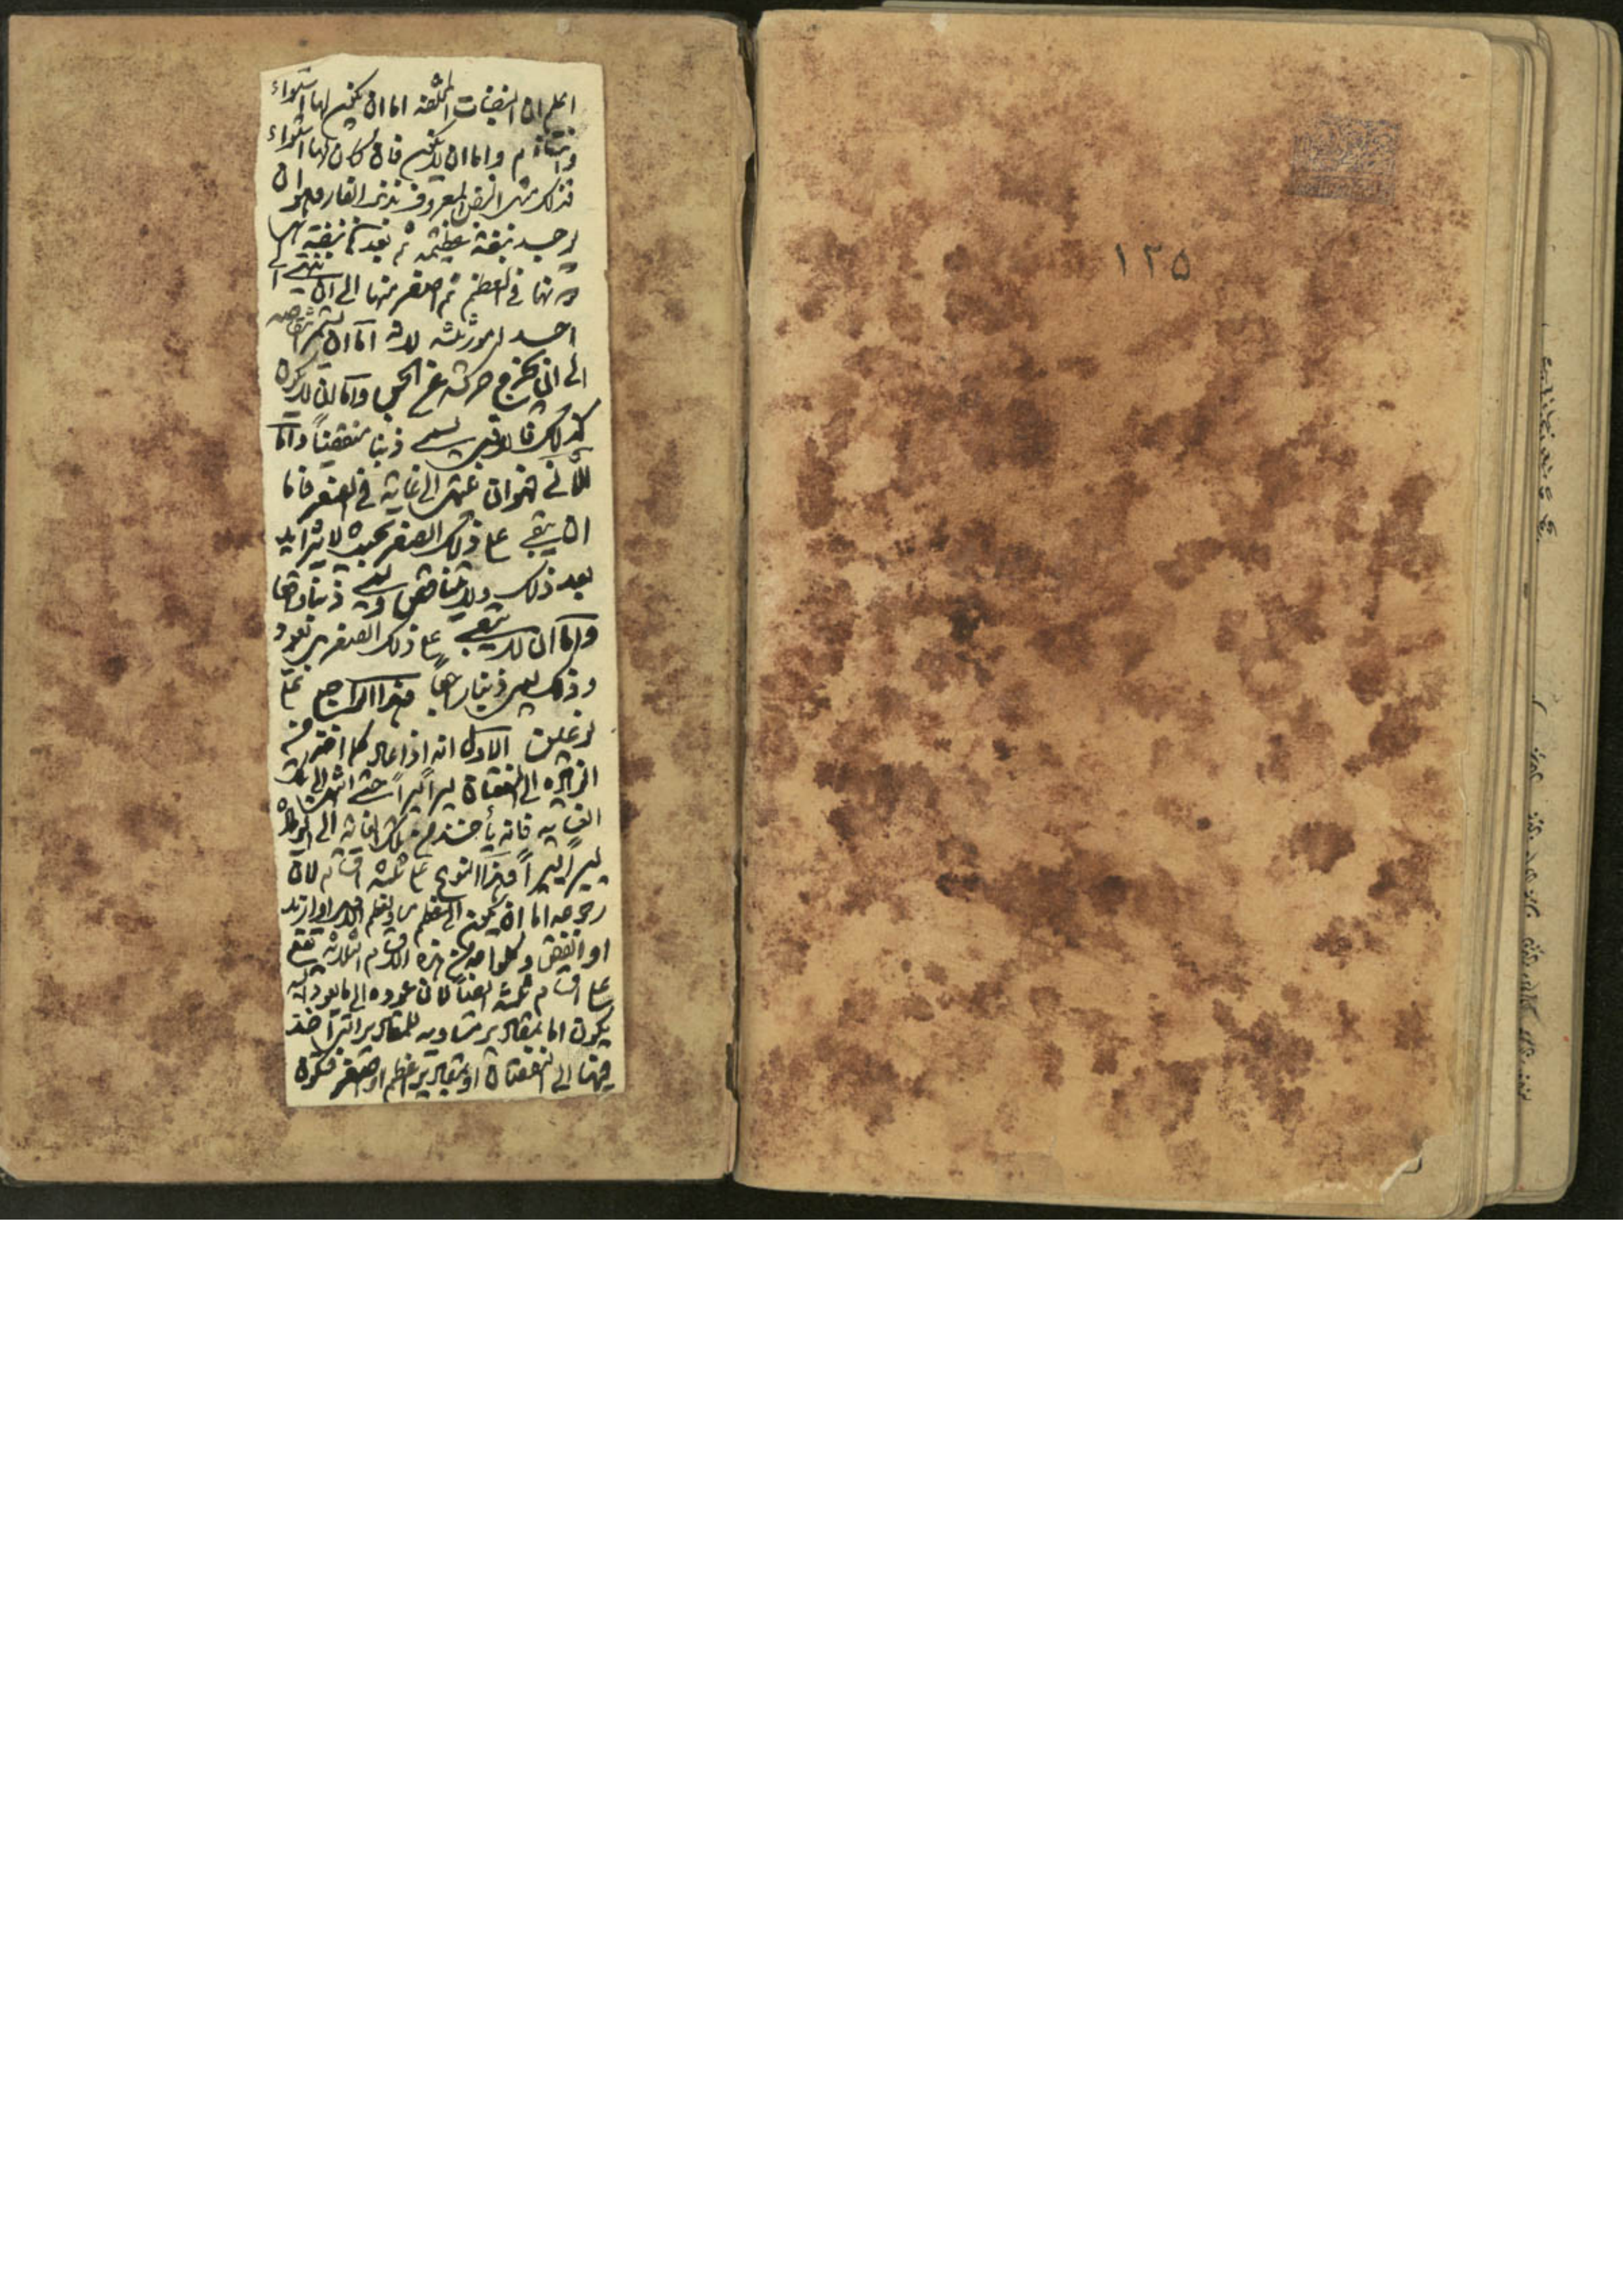 اعلم ان النبضات المختلفة اما ان يكون لها استواء
وانتظام واما ان لا يكون فان كان لها استواء
فذلك مثل النبض المعروف بذنب الفار وهو ان
يوجد نبضة عظيمة ثم بعدها نبضة
دونها في العظم ثم اصغر منها الى ان ينتهي الى
احد امور ثلثه لانه اما ان يستمر تناقصه
الى ان يخرج حركته عن الحس واما ان لا يكون
كذلك فالاول يسمى ذنبا منقضيا واما
الثاني فهو ان ينتهى الى غاية في الصغر فاما
ان يبقى على ذلك الصغر بحيث لا يتزايد
بعد ذلك ولا يتناقص ويسمى ذنبا واقفا
واما ان لا يبقى على ذلك الصغر بل يعود
وذلك يسمى ذنبا راجعا وهذا الراجع على
نوعين الاول انه اذا عاد كما اخذ من
الزيادة الى النقصان يسيرا يسيرا حتى انتهى الى تلك
الغاية فانه يأخذ من تلك الغاية الى الزيادة
يسيرا يسيرا وهذا النوع على ثلثة اقسام لان
رجوعه اما ان يكون الى عظم مساو لعظم الاول او ازيد
او انقص وكل واحد من هذه الاقسام الثلاثة يقع
على اقسام ثلثة ايضا لان عوده الى ما يعود اليه
يكون اما بمقادير مساوية للمقادير التي اخذ
فيها الى النقصان او بمقادير اعظم او اصغر فيكون
١٢٥